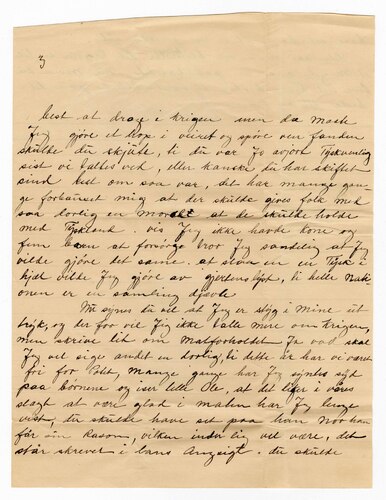 3
best at drage i krigen men da maate
Jeg gjöre et hop i veiret og spöre ven fanden
skulke du skjule, ti du var Jo avjort Tyskvenlig
sist vi taltes ved, eller kanske du har skiftet
sind kest om saa var, det har mange gan
ge forbauset mig at der skulde gives folk med
saa dorlig en Moral at de skulde holde
med Tyskland. vis Jeg ikke havde kone og
fem börn at forsörge tror Jeg sandelig at Jeg
vilde gjöre det samme. at slaa en en Tysk i
hjæl vilde Jeg gjöre av hjertenslyst, ti hele Nas
onen er en samling djævle
Nu synes du vel at Jeg er styg i Mine ut
tryk, og der for vil Jeg ikke talle mere om krigen,
men skrive lit om Matforholdet Ja vad skal
Jeg vel sige andet en dorlig, ti dette Æt har vi været
fri for Idet, mange gange har Jeg syntes synd
paa börnene og iser lille Ole, at det liger i vores
slægt at være glad i maten har Jeg længe
vist, du skulde have set paa han Nor han
får sin Rasion, vilken inderlig vel være, det
står skrevet i hans Anzigt. du skulde